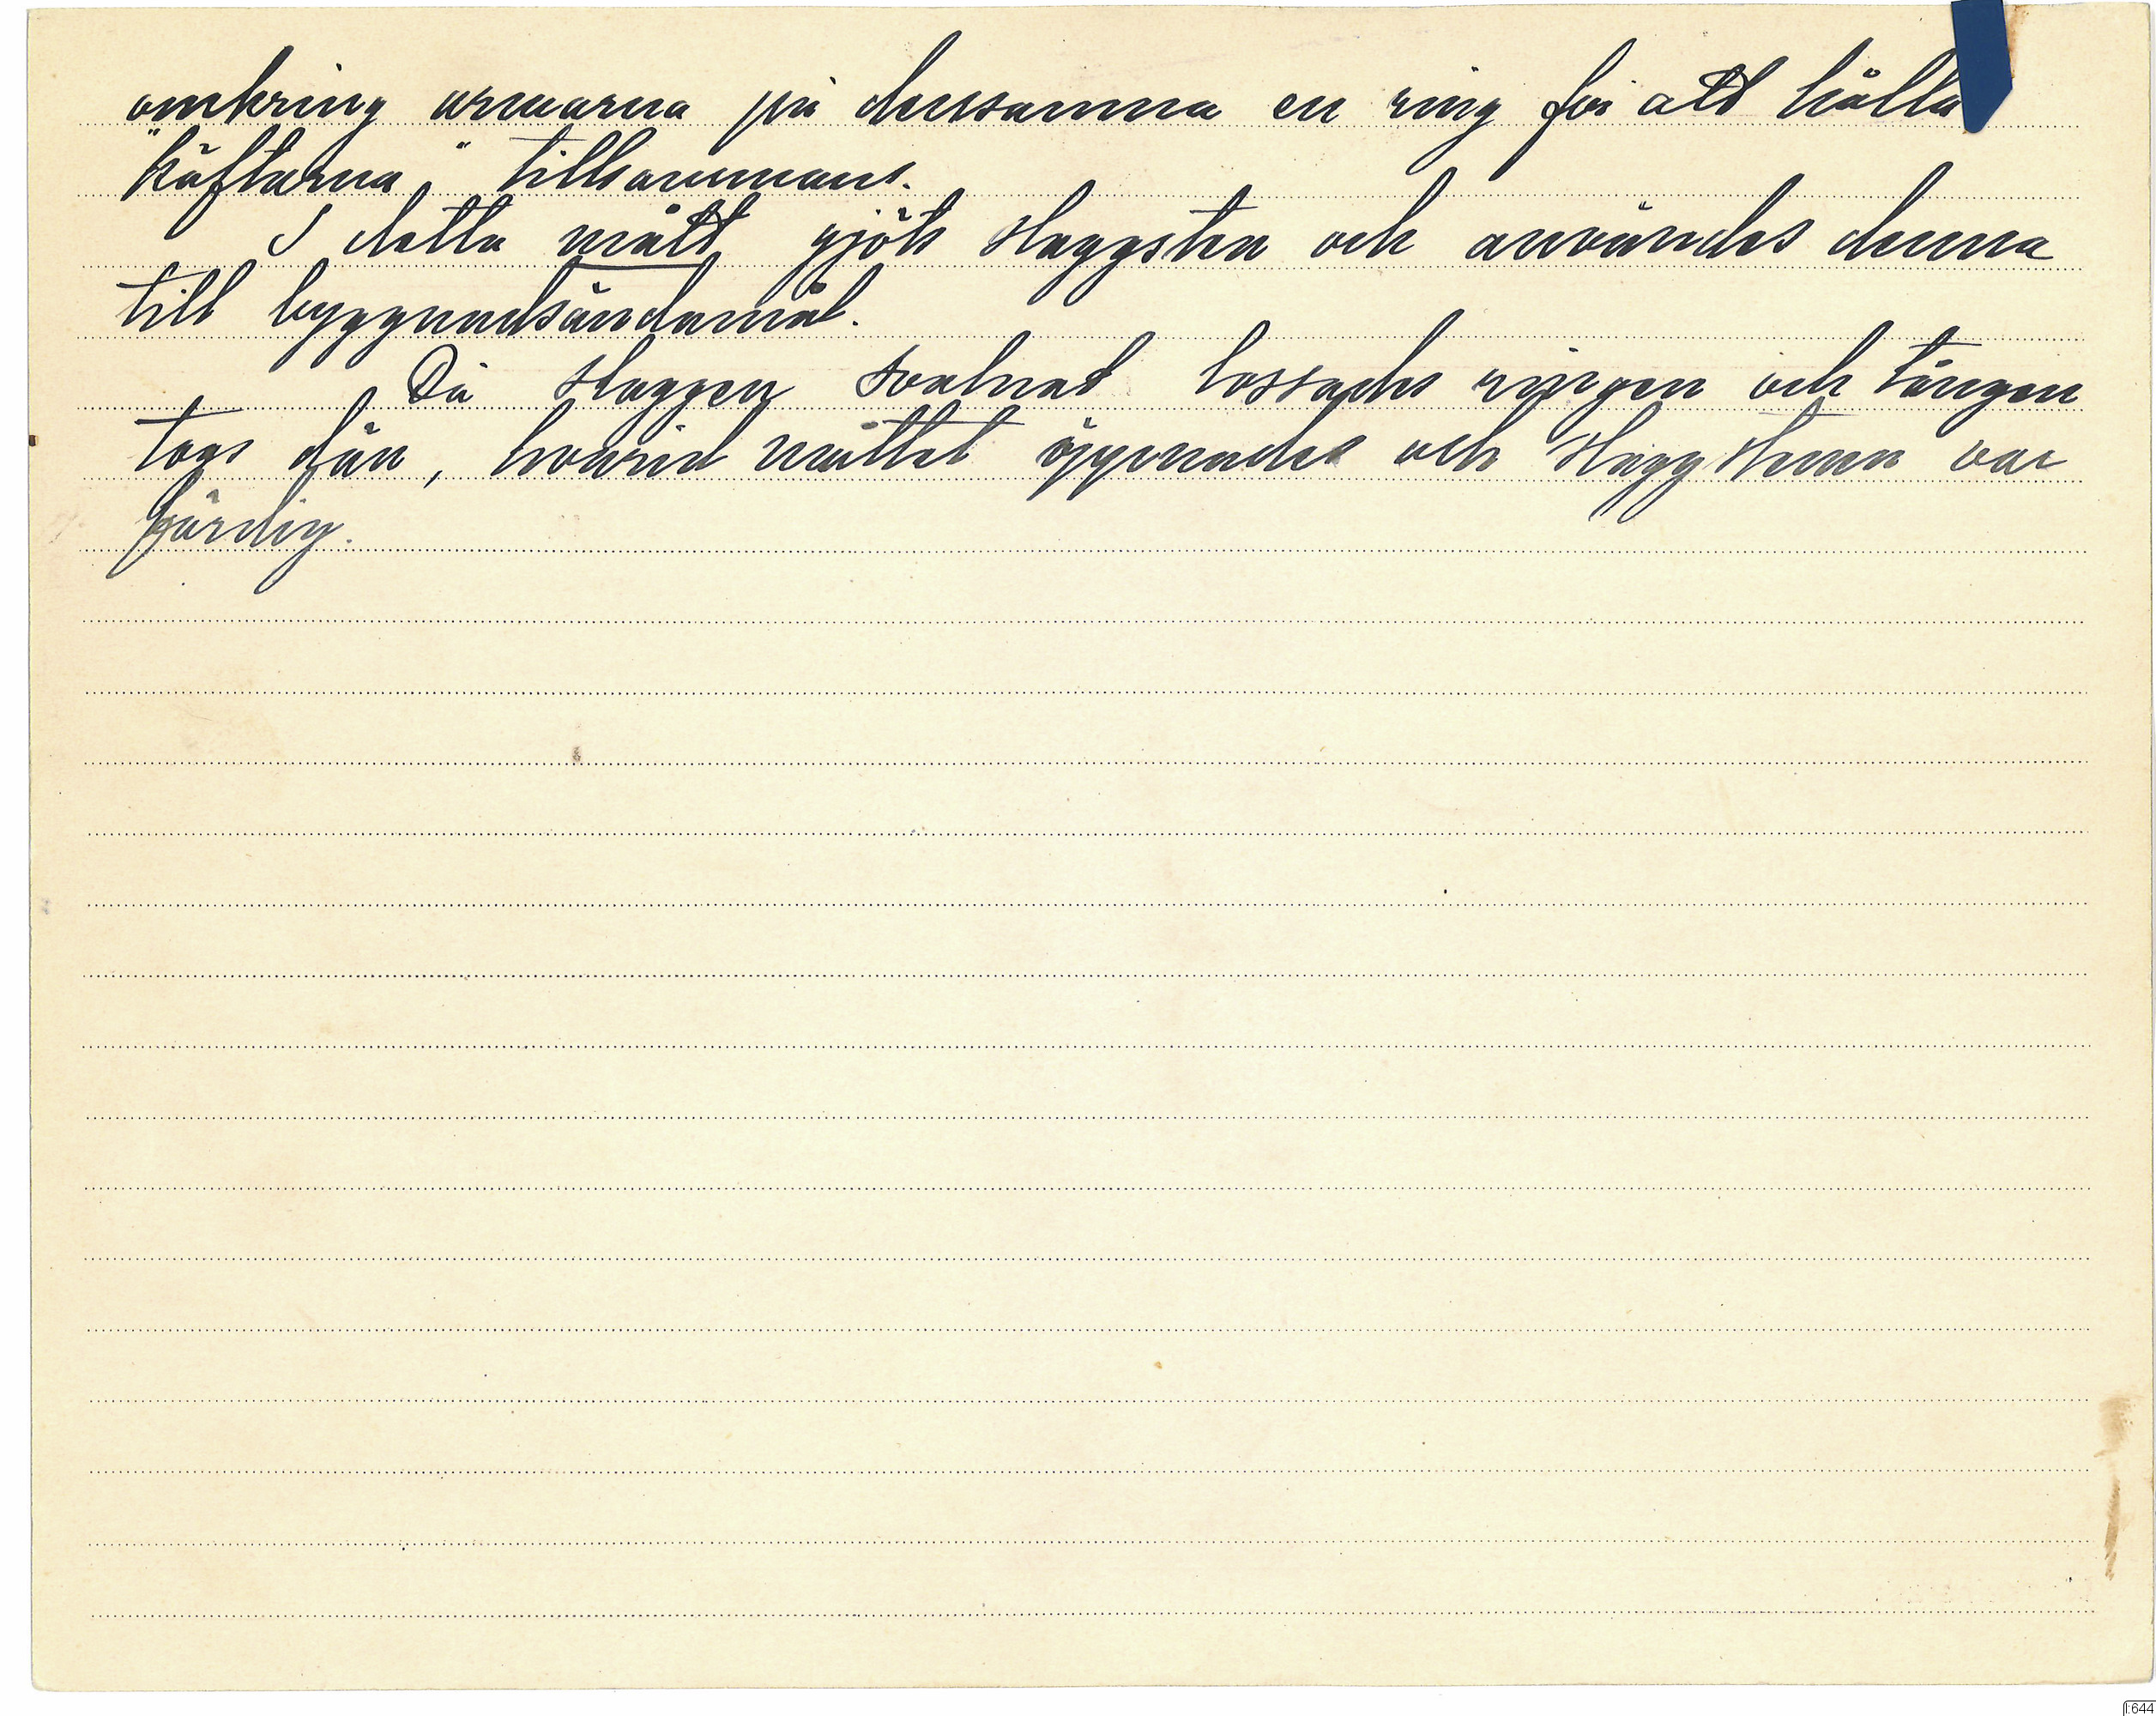 omkring armarna på densamma en ring för att hålla
"käftarna" tillsammans.
I detta mått gjöts slaggsten och användes denna
till byggnadsändamål.
Då slaggen svalnat lossades ringen och tången
togs från, hvarvid måttet öppnades och slaggstenen var
färdig.
I:644